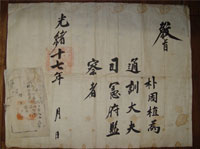 敎旨
朴因植爲
通訓大夫
司憲府監
察者
光緖十七年 月 日